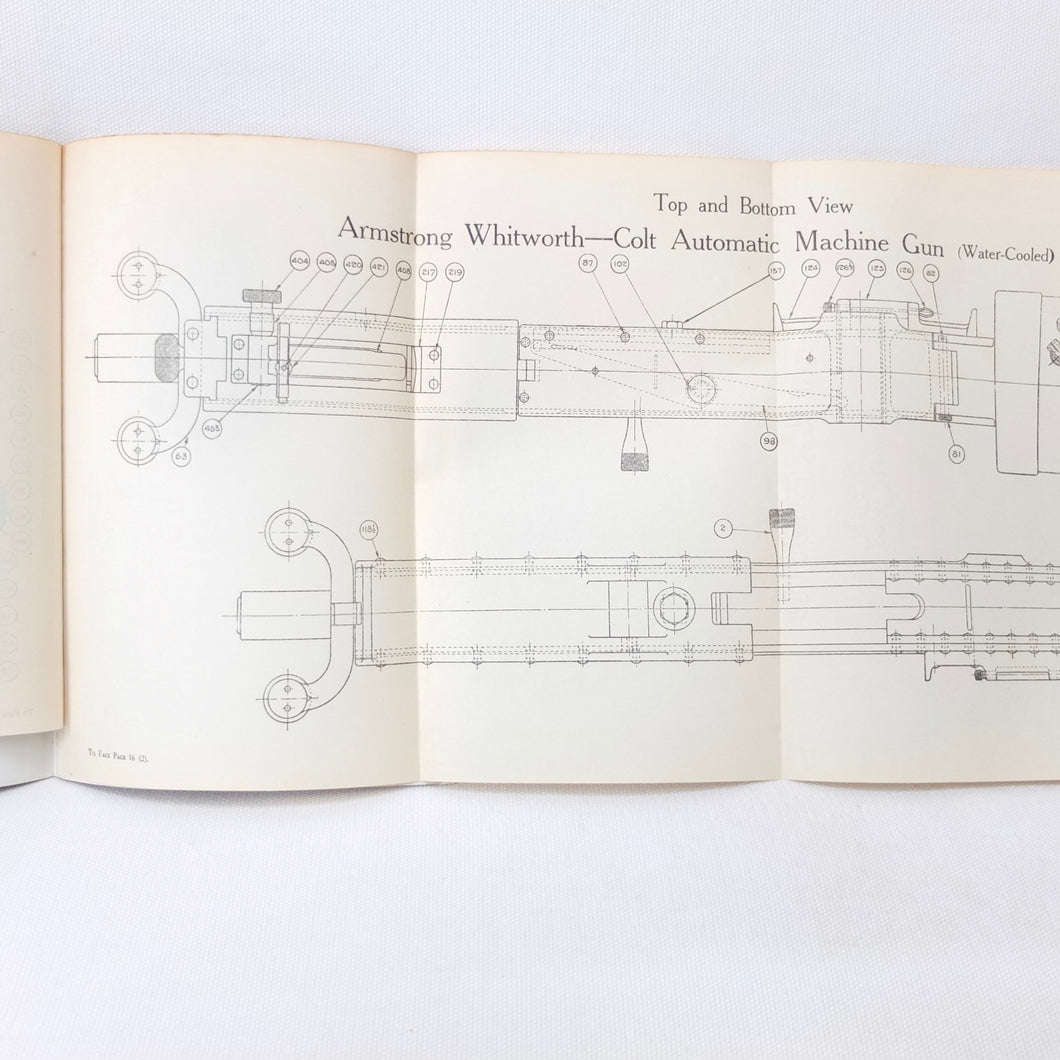 Top and Bottom View
Armstrong Whitworth—Colt Automatic Machine Gun (Water-Cooled)
404 405 420 421 408 217 219 87 102 157 124 126½ 123 126 82
403 63 98 81
118½ 2
To Face Page 16 (2).